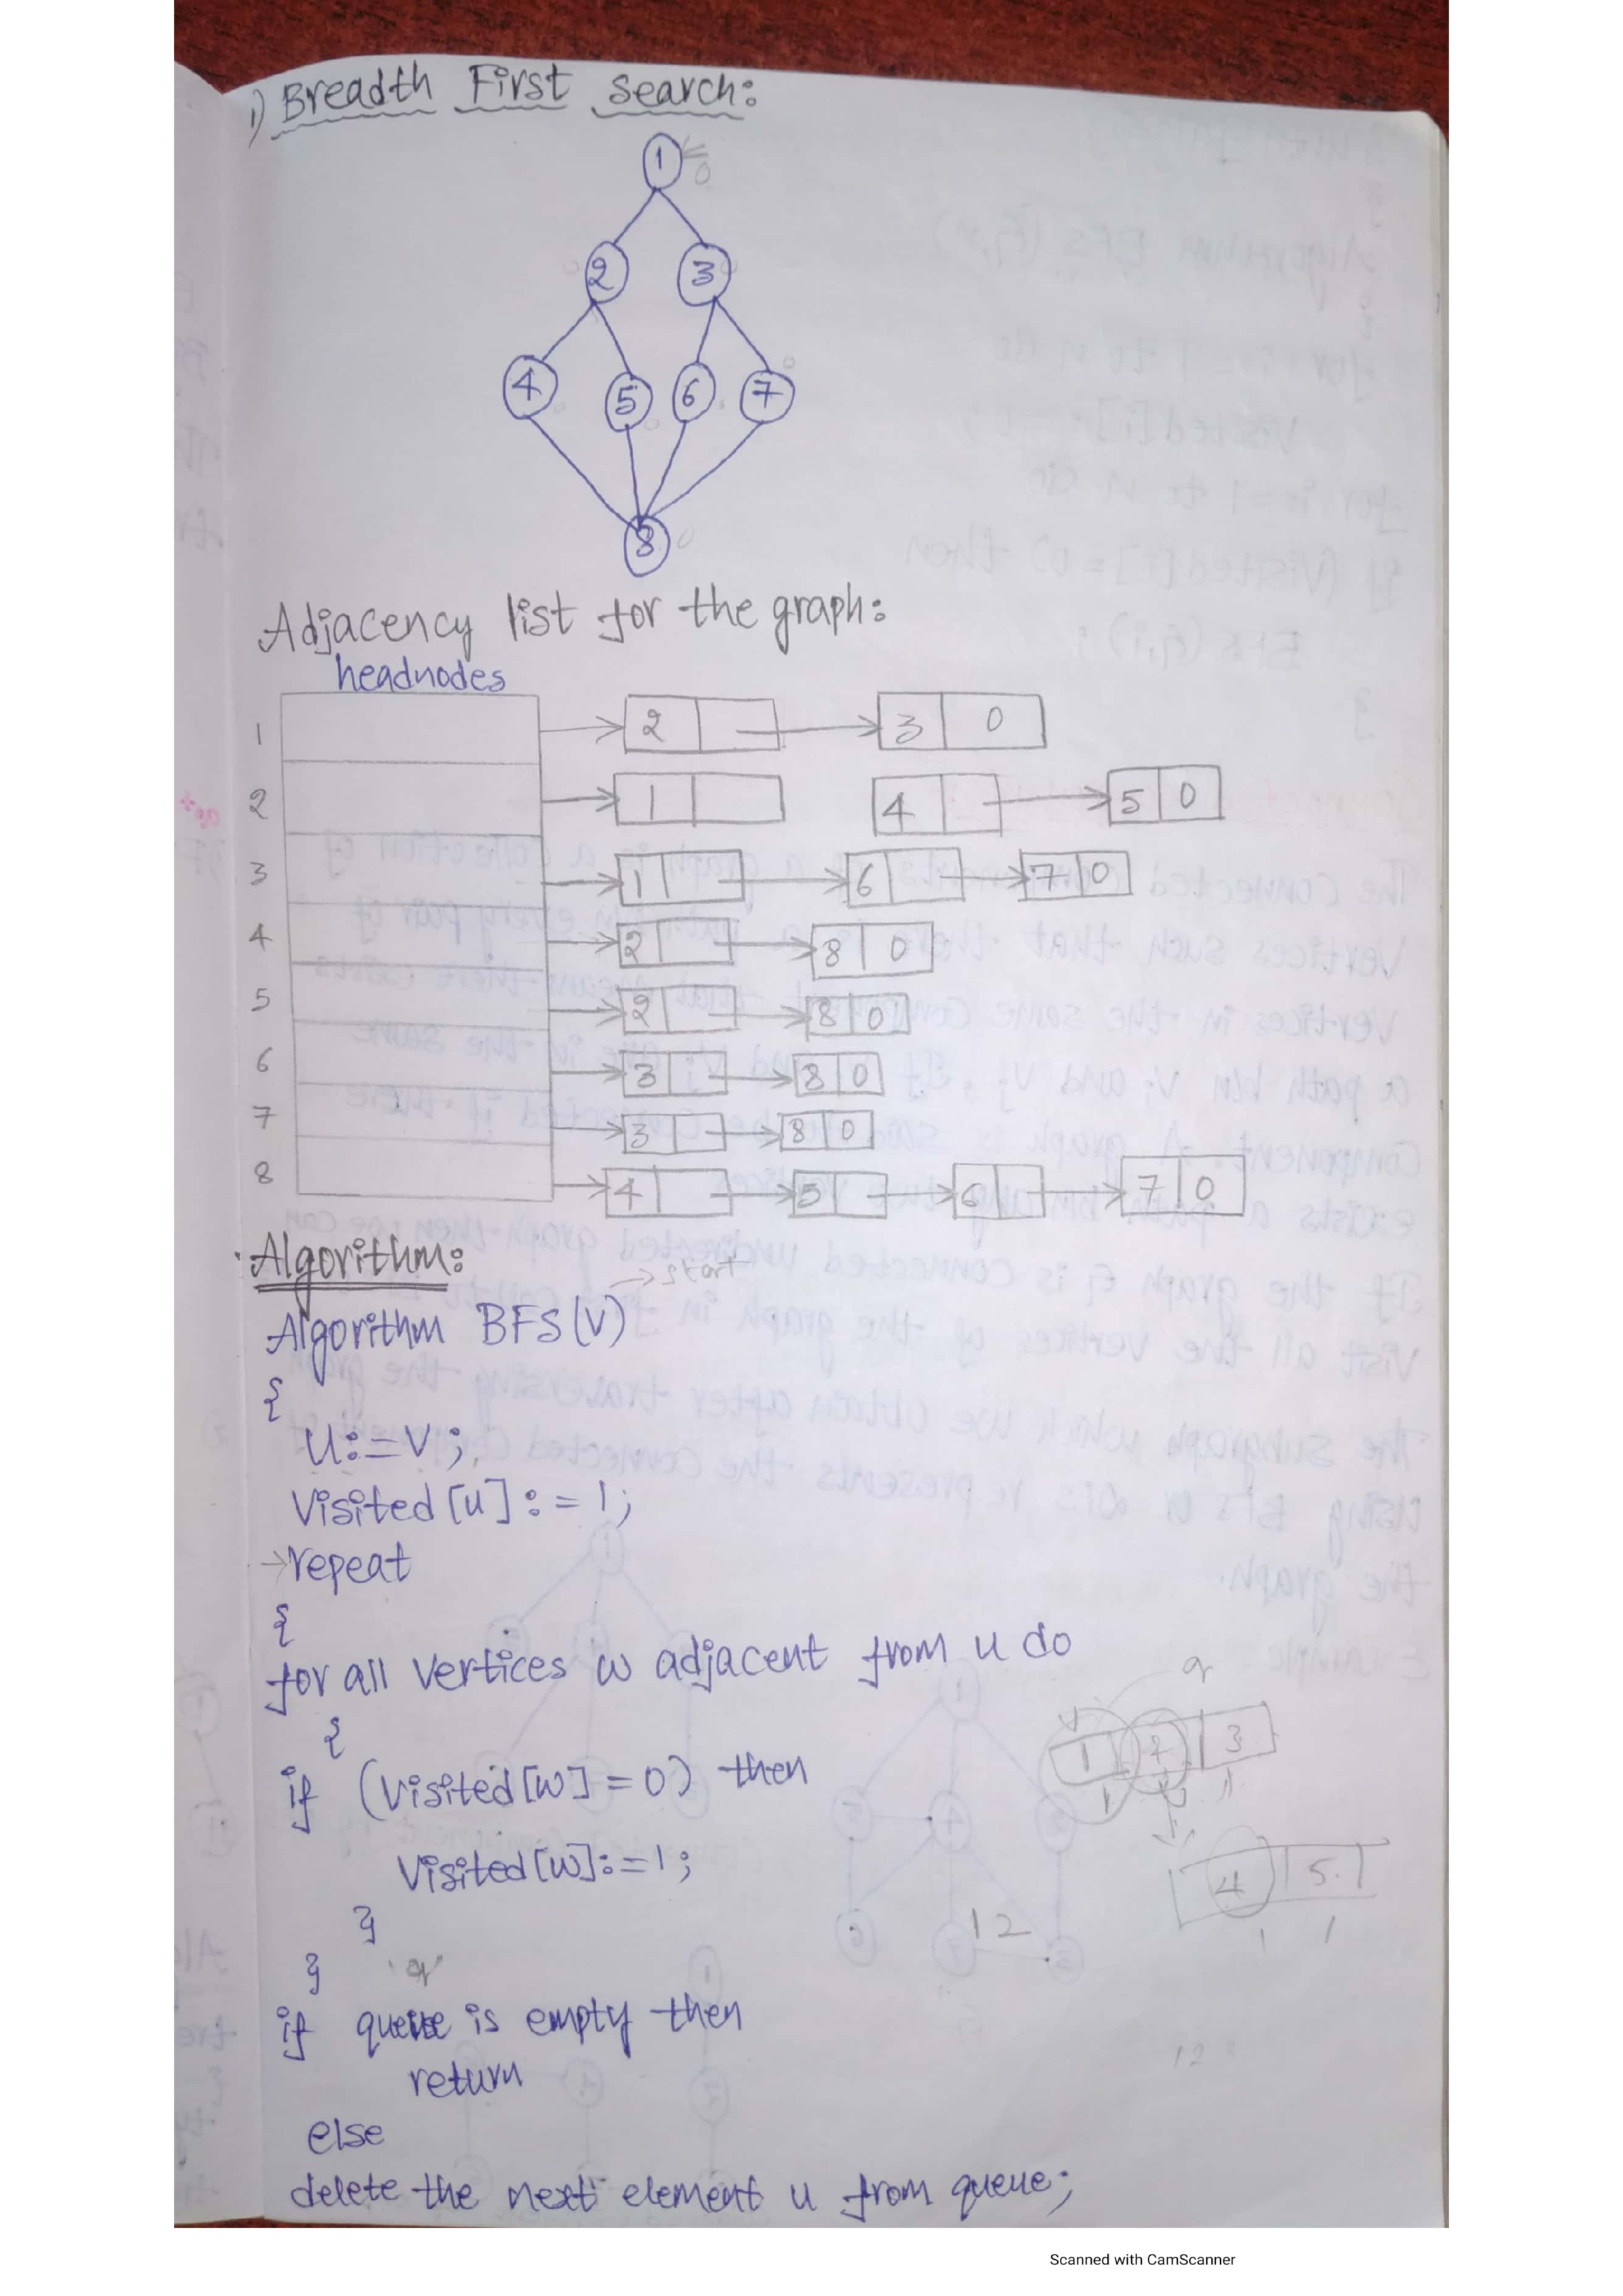 1) Breadth First Search:
1
2 3
4 5 6 7
8
Adjacency list for the graph:
headnodes
1 2 3 0
2 1 4 5 0
3 1 6 7 0
4 2 8 0
5 2 8 0
6 3 8 0
7 3 8 0
8 4 5 6 7 0
Algorithm:
→ start
Algorithm BFS(V)
{
U:=V;
Visited[u]:=1;
→repeat
{
for all vertices w adjacent from u do
{
if (Visited[w]=0) then
Visited[w]:=1;
}
}
if queue is empty then
return
else
delete the next element u from queue;
q
1 2 3
4 5
12
Scanned with CamScanner